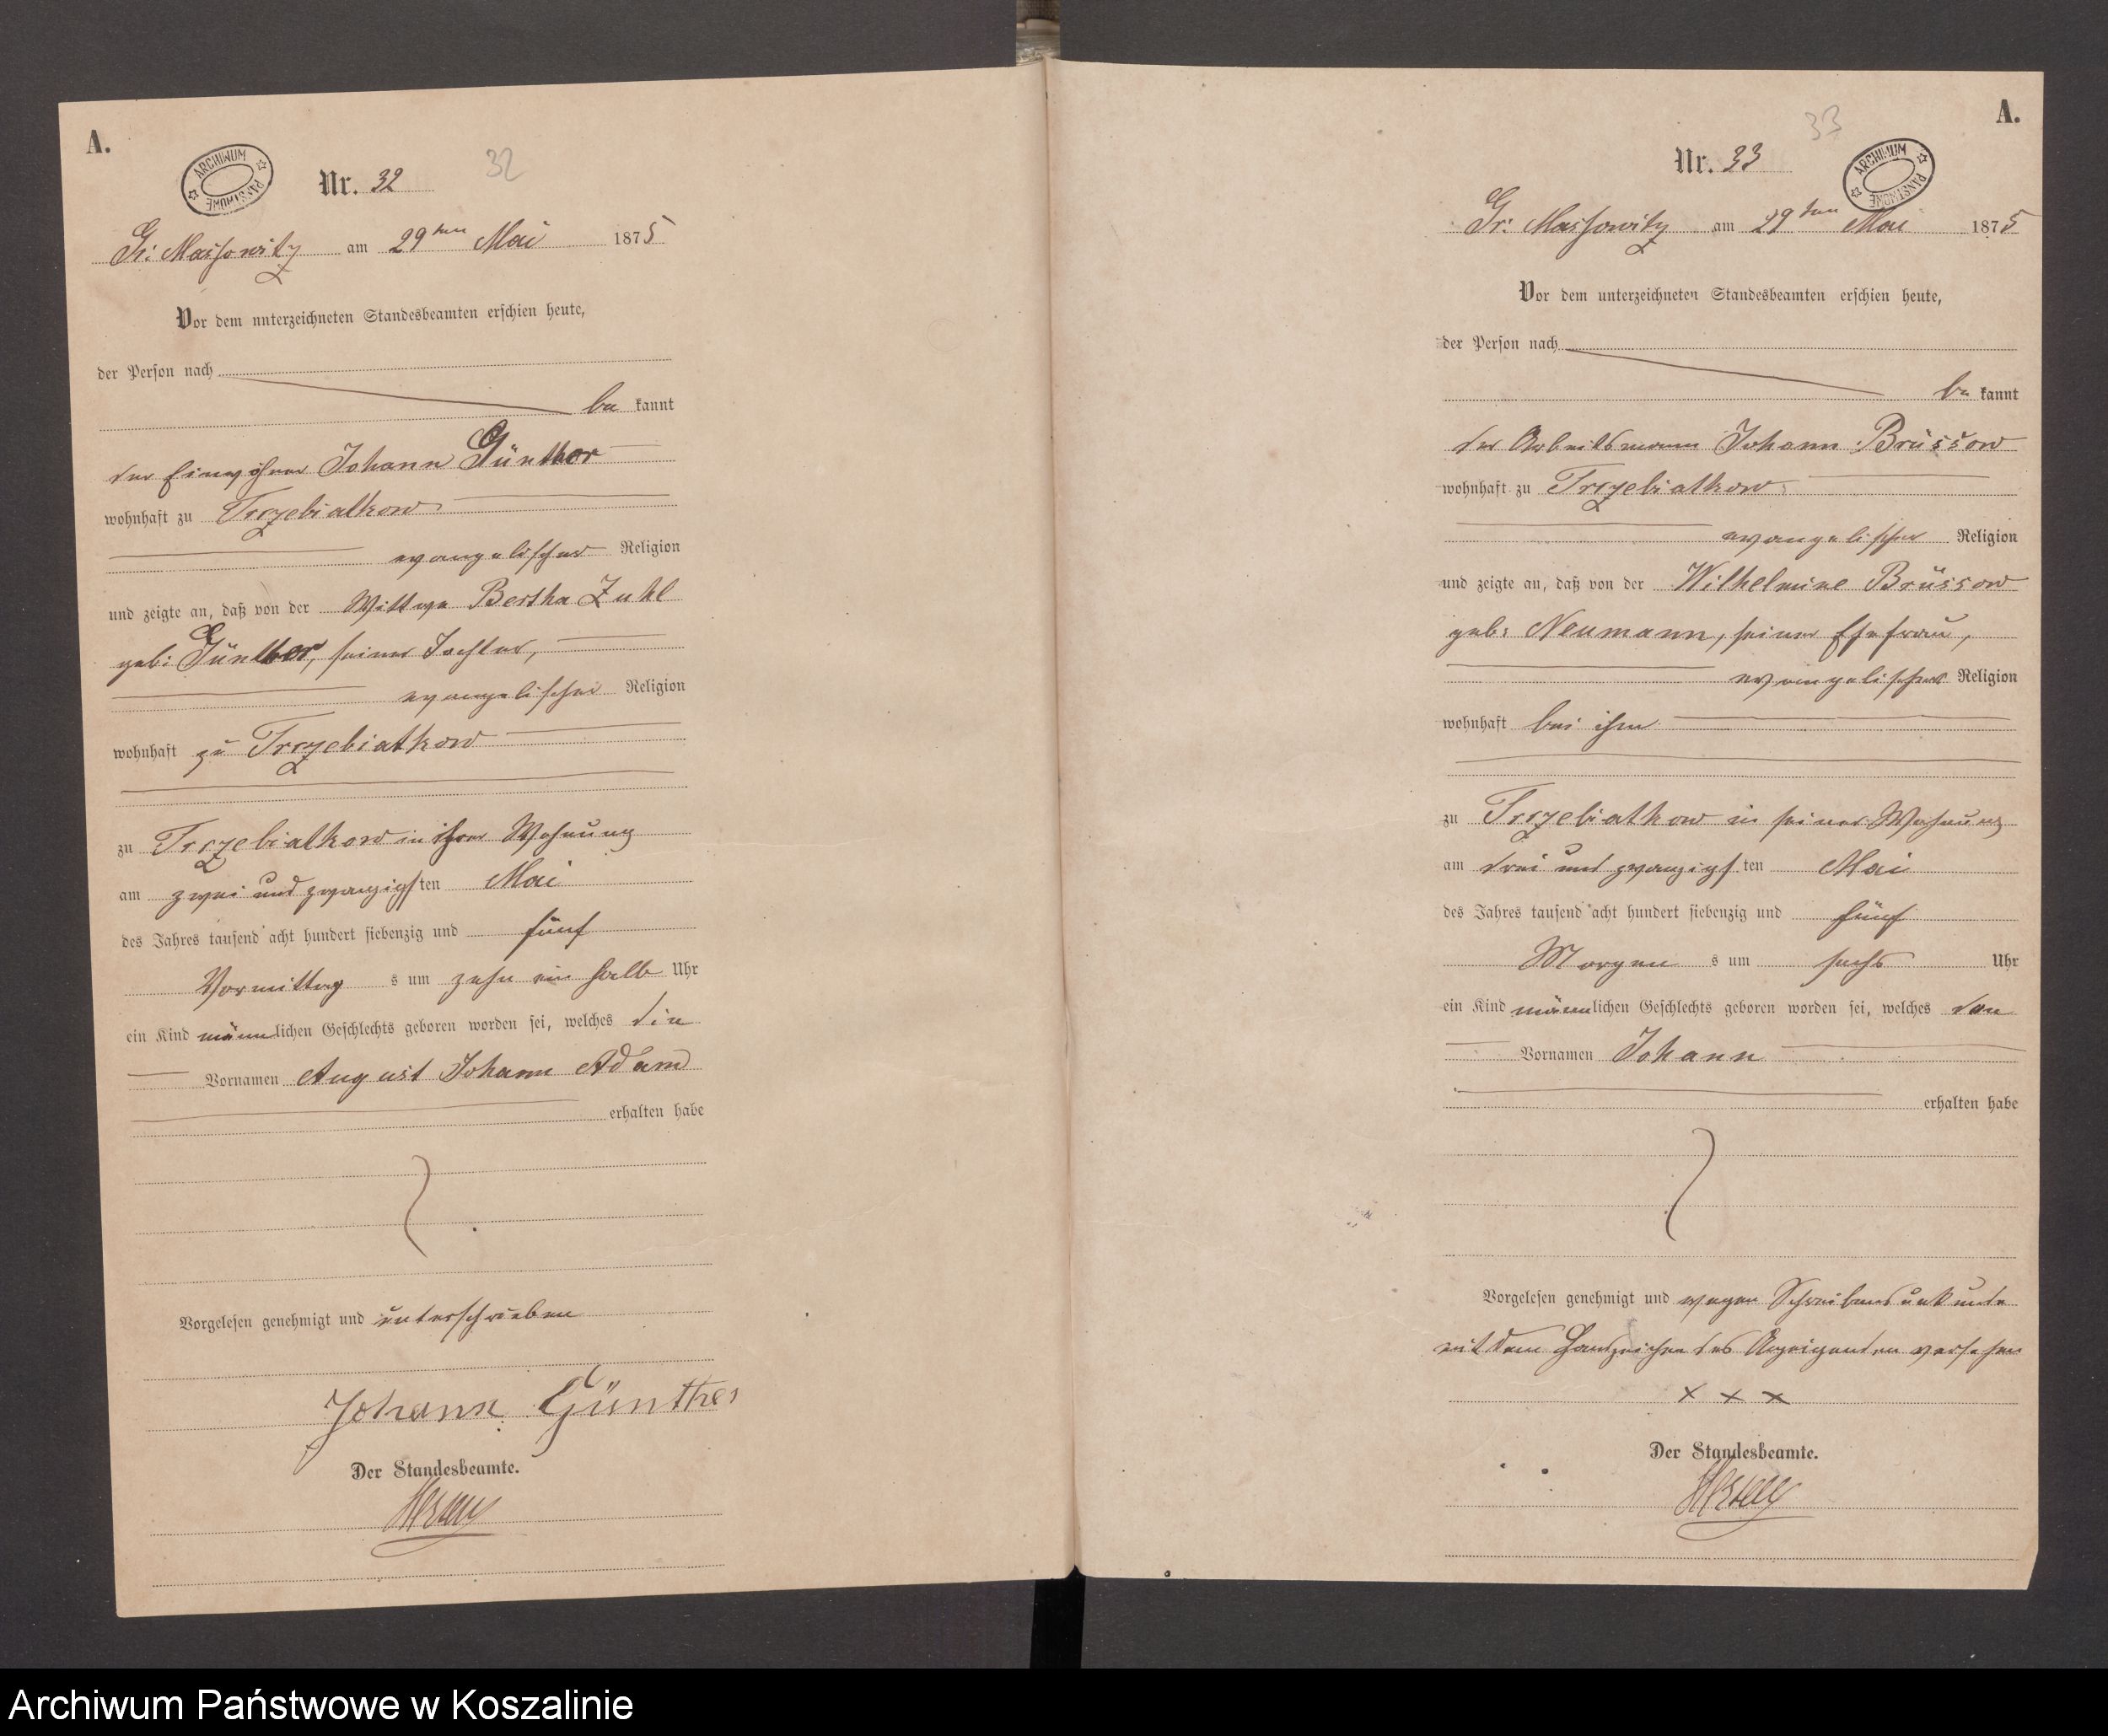 A.
ARCHIWUM PAŃSTWOWE
Nr. 32
32
Gr: Massowitz am 29ten Mai 1875
Vor dem unterzeichneten Standesbeamten erschien heute,
der Person nach
be kannt
der Einwohner Johann Günther
wohnhaft zu Trzebiatkow
evangelischer Religion
und zeigte an, daß von der Wittwe Bertha Zuhl
geb: Günther, seiner Tochter,
evangelischer Religion
wohnhaft zu Trzebiatkow
zu Trzebiatkow in ihrer Wohnung
am zwei und zwanzigsten Mai
des Jahres tausend acht hundert siebenzig und fünf
Vormittag s um zehn ein halb Uhr
ein Kind männlichen Geschlechts geboren worden sei, welches die
Vornamen August Johann Adam
erhalten habe
Vorgelesen genehmigt und unterschrieben
Johann Günther
Der Standesbeamte.
A.
33
Nr. 33
ARCHIWUM PAŃSTWOWE
Gr: Massowitz am 29ten Mai 1875
Vor dem unterzeichneten Standesbeamten erschien heute,
der Person nach
be kannt
der Arbeitsmann Johann Brüssow
wohnhaft zu Trzebiatkow
evangelischer Religion
und zeigte an, daß von der Wilhelmine Brüssow
geb: Neumann, seiner Ehefrau,
evangelischer Religion
wohnhaft bei ihm
zu Trzebiatkow in seiner Wohnung
am drei und zwanzigsten Mai
des Jahres tausend acht hundert siebenzig und fünf
Morgen s um sechs Uhr
ein Kind männlichen Geschlechts geboren worden sei, welches den
Vornamen Johann
erhalten habe
Vorgelesen genehmigt und wegen Schreibensunkunde
mit dem Handzeichen des Anzeigenden versehen
x x x
Der Standesbeamte.
Archiwum Państwowe w Koszalinie